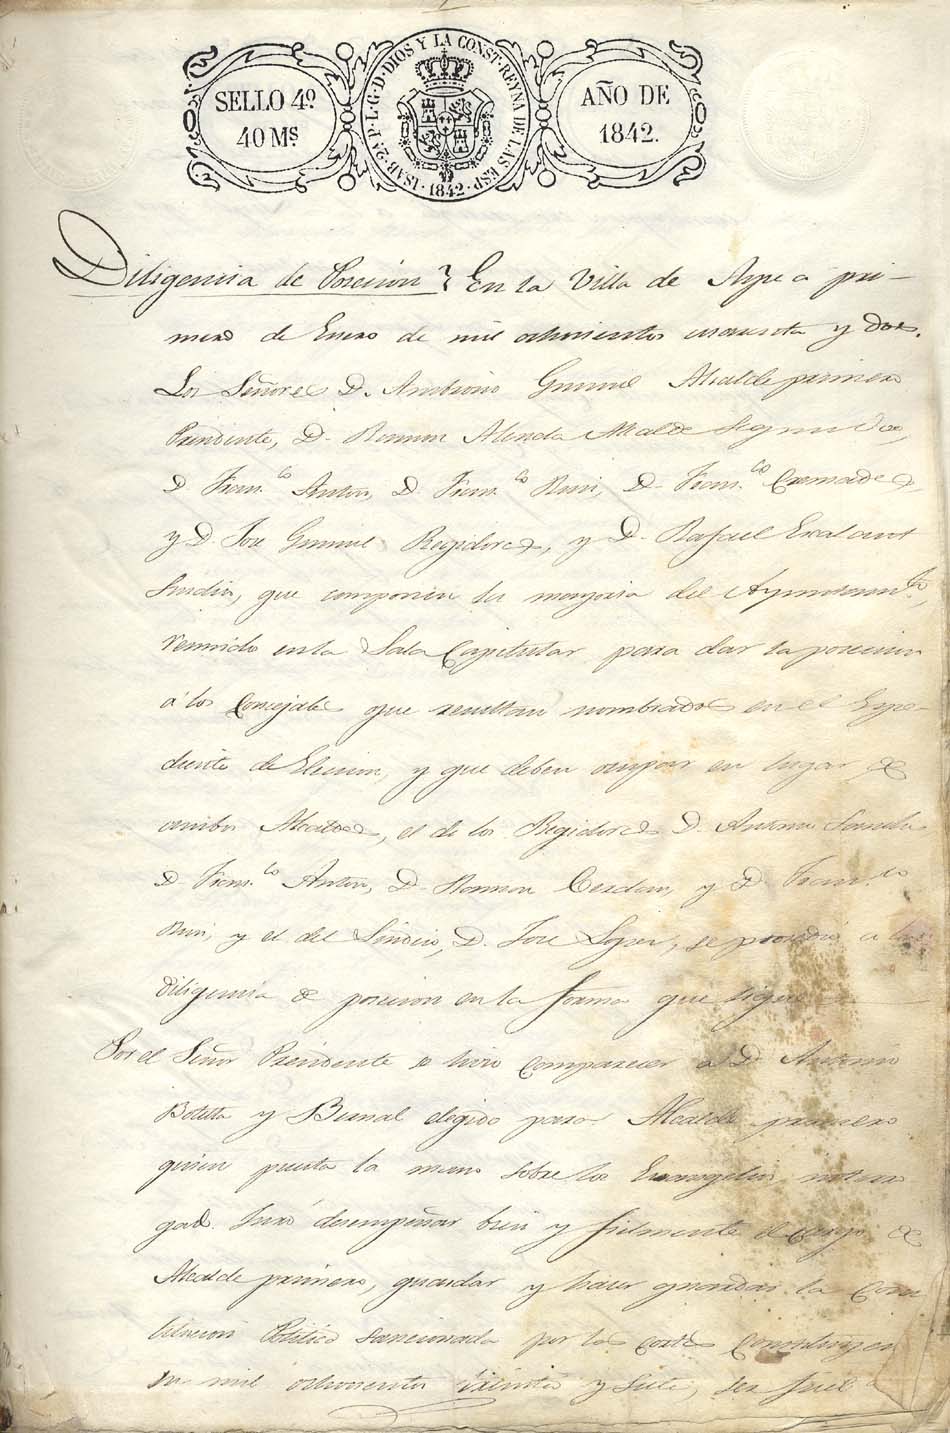 SELLO 4º
40 Mˢ
ISAB. 2ª P. L. G. D. DIOS Y LA CONST. REYNA DE LAS ESP.
1842
AÑO DE
1842.
Diligencia de Posecion } En la Villa de Aspe a pri-
mero de Enero de mil ochocientos cuarenta y dos.
Los Señores D. Ambrosio Gumiel Alcalde primero
Presidente, D. Ramon Alenda Alcalde Segundo,
D. Franᶜᵒ Anton, D. Franᶜᵒ Ruiz, D. Franᶜᵒ Cremades,
y D. Jose Gumiel Regidores, y D. Rafael
Sindico, que componen la mayoria del Ayuntamᵗᵒ,
reunido en la Sala Capitular para dar la posecion
á los Concejales que resultan nombrados en el Espe-
diente de Elecion, y que deben ocupar en lugar de
ambos Alcaldes, el de los Regidores D. Antonio
D. Franᶜᵒ Anton, D. Ramon Cerdan, y D. Franᶜᵒ
Ruiz, y el del Sindico, D. Jose Lopez, se procedió a la
diligencia de posecion en la forma que sigue
Por el Señor Presidente se hizo comparecer a D. Antonio
Botella y Bernal elegido para Alcalde primero
quien puesta la mano sobre los Evangelios
Juró desempeñar bien y fielmente el cargo de
Alcalde primero, guardar y hacer guardar la Cons
titucion Politica sancionada por las Cortes Constituyen
en mil ochocientos treinta y siete, ser fiel a